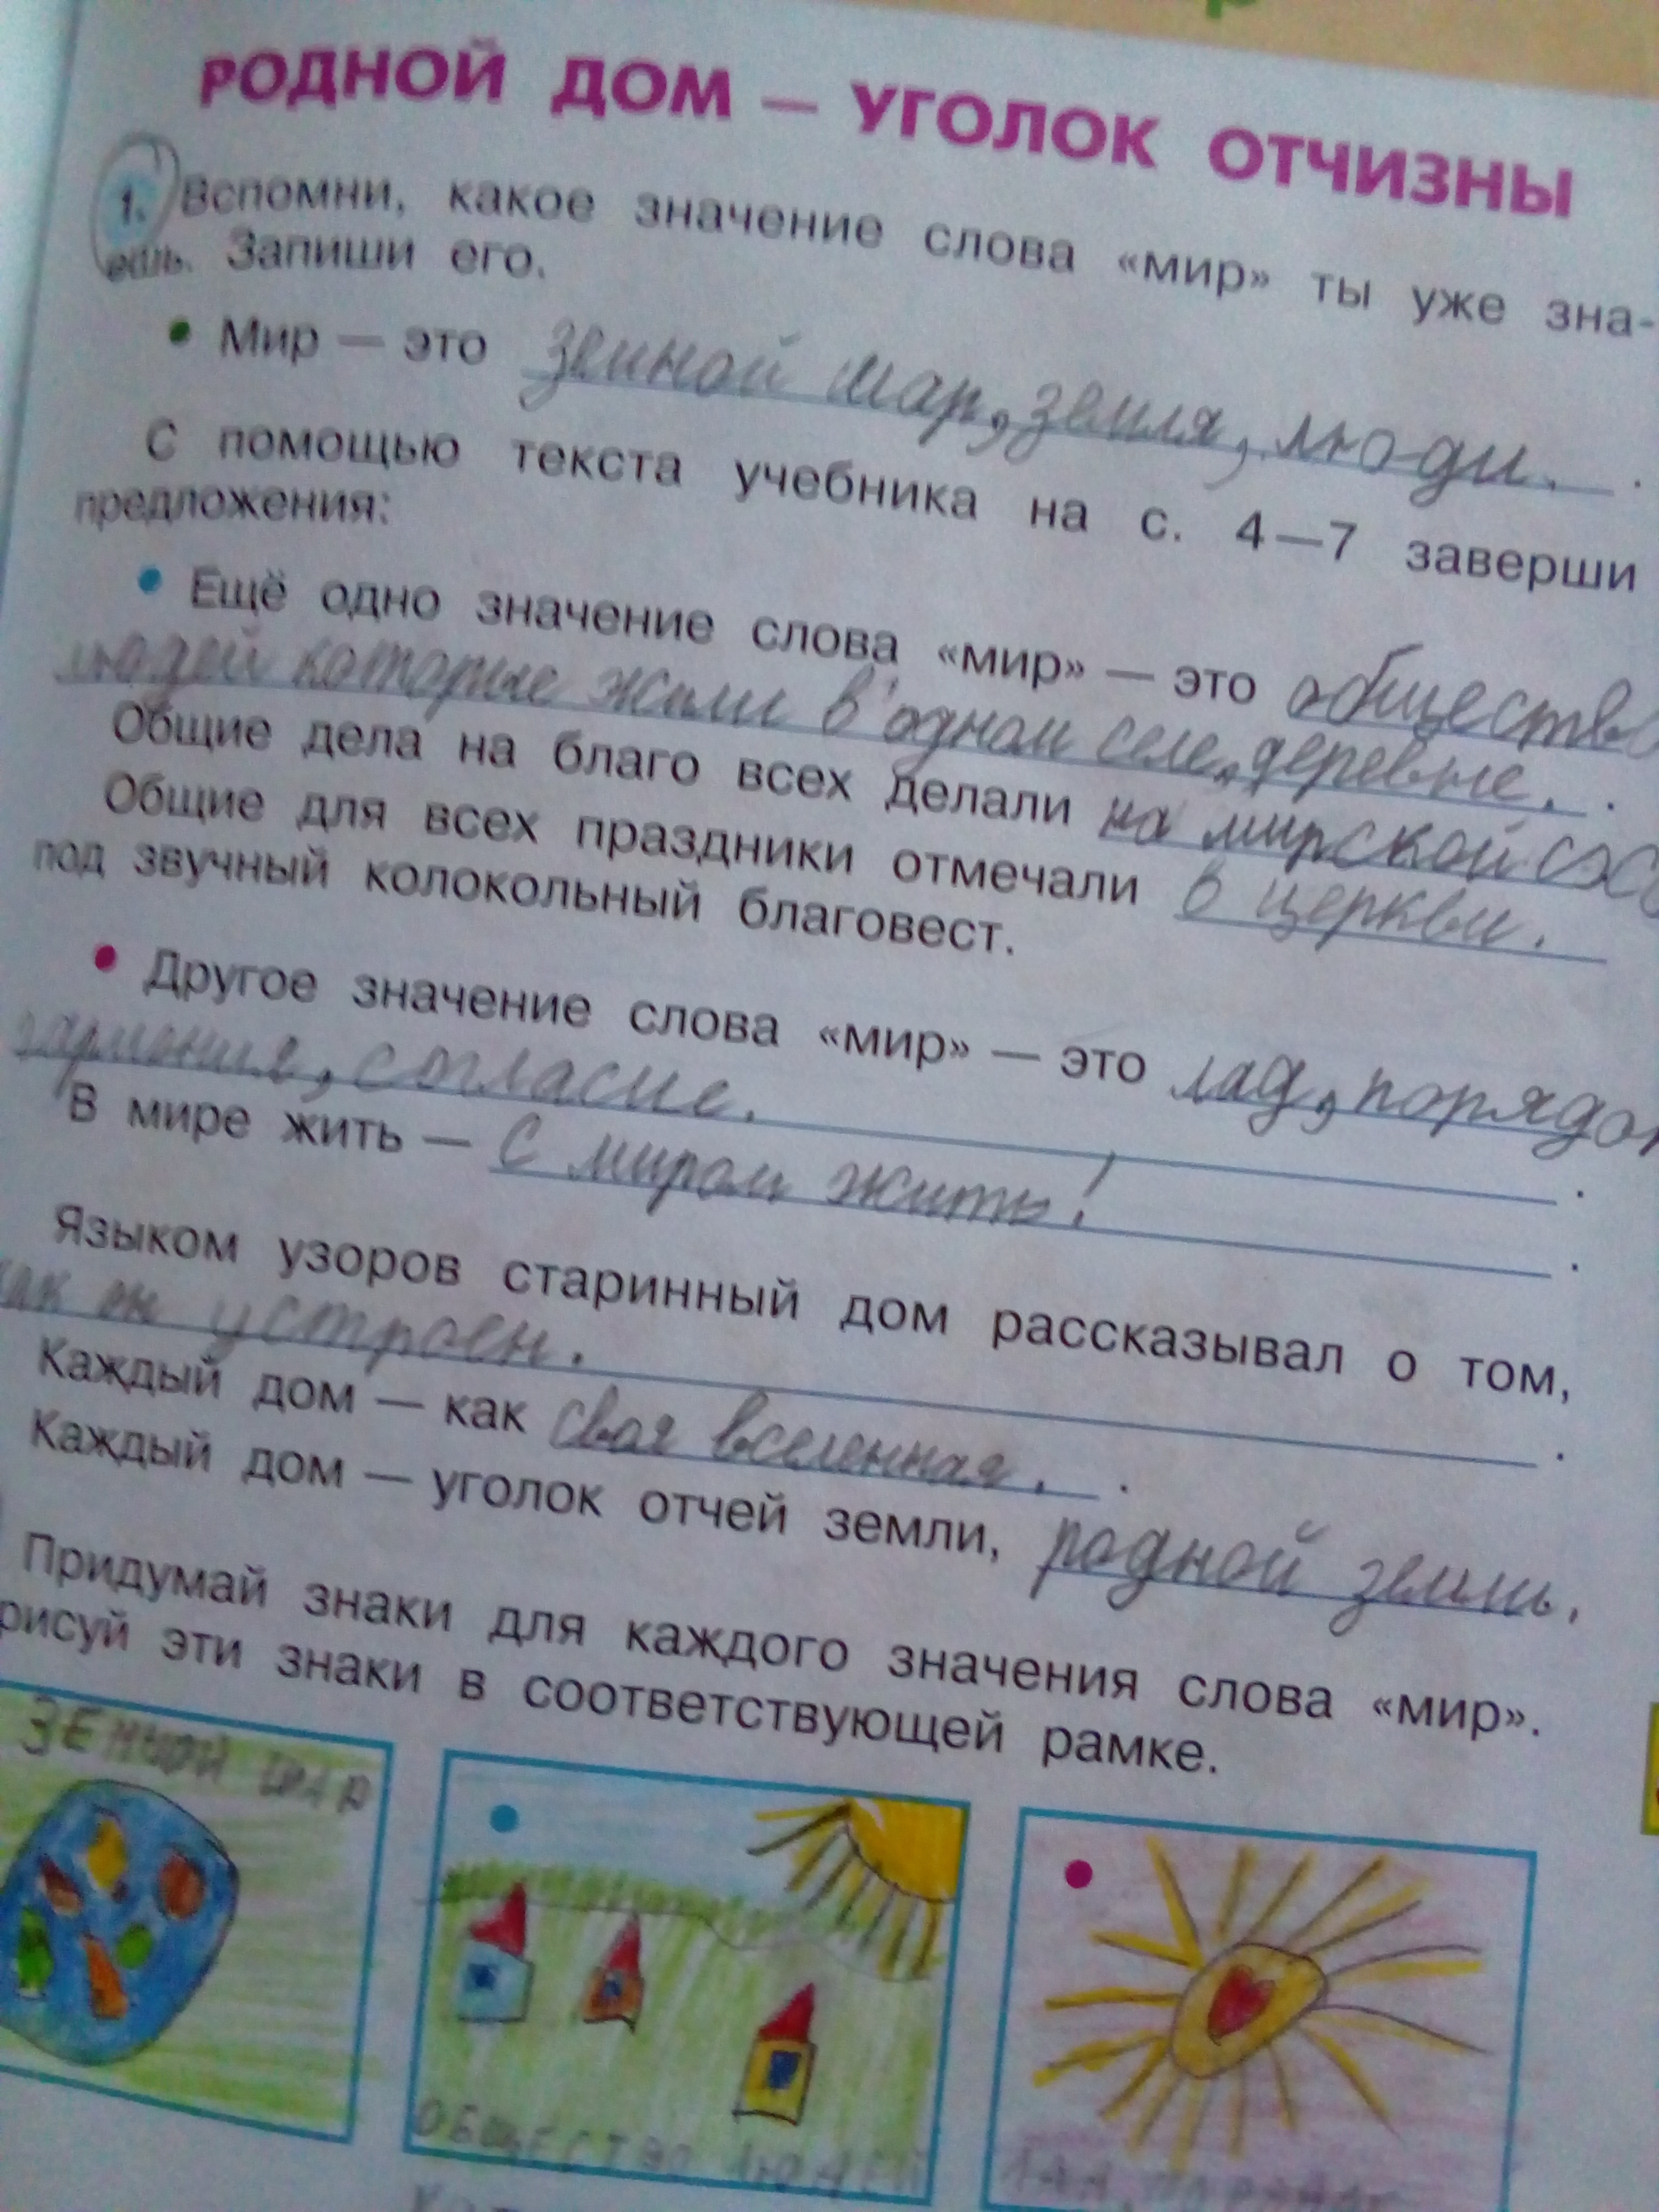 РОДНОЙ ДОМ — УГОЛОК ОТЧИЗНЫ
1. Вспомни, какое значение слова «мир» ты уже зна-
ешь. Запиши его.
• Мир — это земной шар, земля, люди. .
С помощью текста учебника на с. 4—7 заверши
предложения:
• Ещё одно значение слова «мир» — это общество
людей которые жили в одном селе, деревне. .
Общие дела на благо всех делали на мирской
Общие для всех праздники отмечали в церкви.
под звучный колокольный благовест.
• Другое значение слова «мир» — это лад, порядок
гармония, согласие. .
В мире жить — С миром жить! .
Языком узоров старинный дом рассказывал о том,
как он устроен. .
Каждый дом — как своя вселенная. .
Каждый дом — уголок отчей земли, родной земли.
Придумай знаки для каждого значения слова «мир».
рисуй эти знаки в соответствующей рамке.
ЗЕМНОЙ ШАР
ОБЩЕСТВО ЛЮДЕЙ
ЛАД,